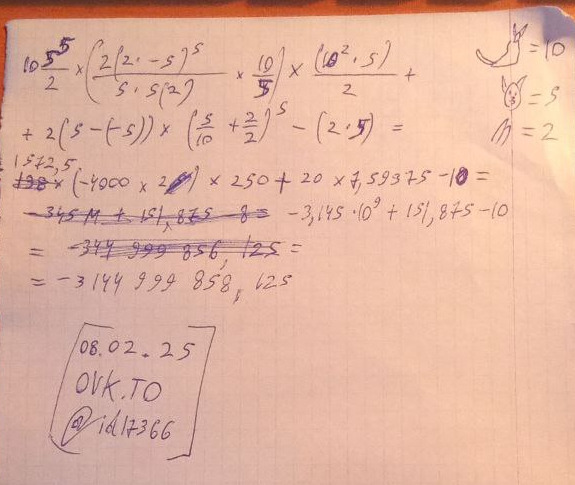 10 5^5/2 × (2(2·-5)^5/5·5(2) × 10/5) × (10²·5)/2 +
= 10
+ 2(5-(-5)) × (5/10 + 2/2)^5 - (2·5) =
= 5
= 2
1572,5 × (-4000 × 2) × 250 + 20 × 7,59375 - 10 =
-345 M + 151,875 - 8 = -3,145·10⁹ + 151,875 - 10
= -344 999 856,125 =
= -3144 999 858,125
08.02.25
OVK.TO
@id17366